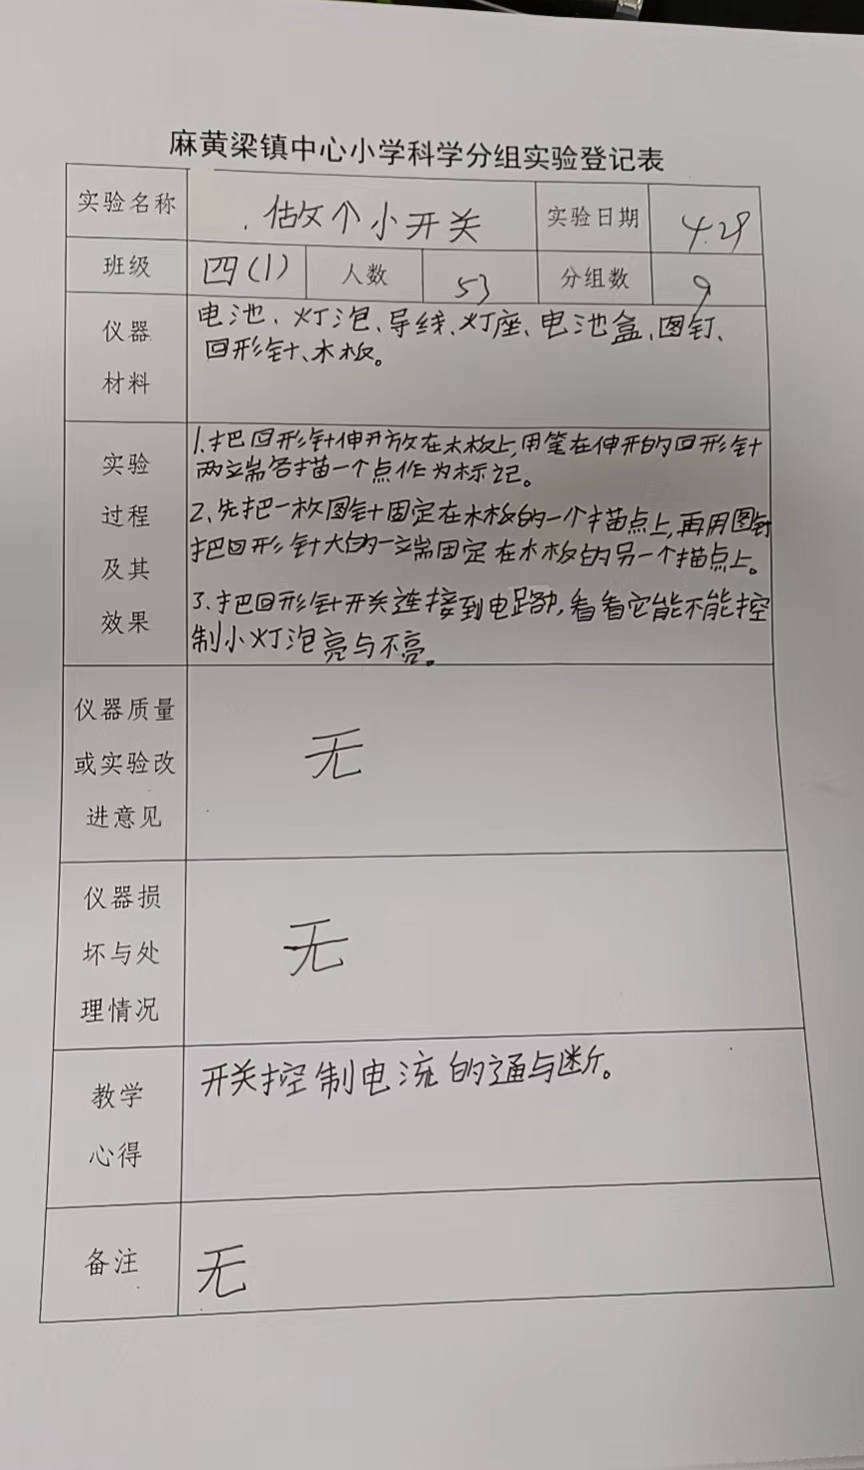 麻黄梁镇中心小学科学分组实验登记表
实验名称 做个小开关 实验日期 4.29
班级 四(1) 人数 53 分组数 9
仪器
材料
电池、灯泡、导线、灯座、电池盒、图钉、
回形针、木板。
实验
过程
及其
效果
1.把回形针伸开放在木板上,用笔在伸开的回形针
两端各描一个点作为标记。
2、先把一枚图钉固定在木板的一个描点上,再用图钉
把回形针大的一端固定在木板的另一个描点上。
3.把回形针开关连接到电路中,看看它能不能控
制小灯泡亮与不亮。
仪器质量
或实验改
进意见
无
仪器损
坏与处
理情况
无
教学
心得
开关控制电流的通与断。
备注
无